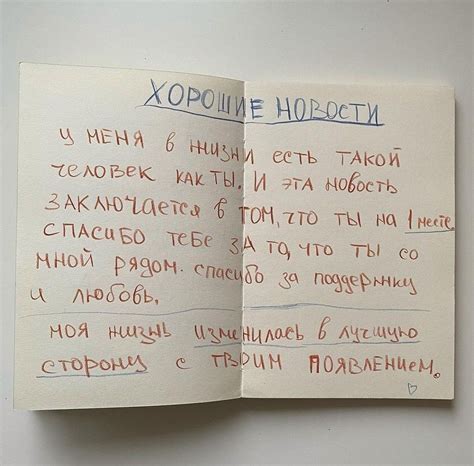 ХОРОШИЕ НОВОСТИ
У МЕНЯ В ЖИЗНИ ЕСТЬ ТАКОЙ
ЧЕЛОВЕК КАК ТЫ. И ЭТА НОВОСТЬ
ЗАКЛЮЧАЕТСЯ В ТОМ, ЧТО ТЫ НА 1 месте.
СПАСИБО ТЕБЕ ЗА ТО, ЧТО ТЫ СО
МНОЙ РЯДОМ. СПАСИБО ЗА ПОДДЕРЖКУ
И ЛЮБОВЬ.
МОЯ ЖИЗНЬ ИЗМЕНИЛАСЬ В ЛУЧШУЮ
СТОРОНУ С ТВОИМ ПОЯВЛЕНИЕМ.